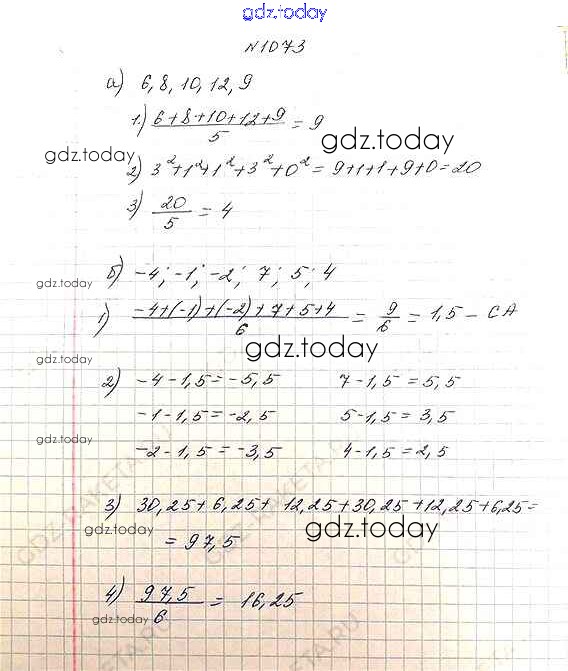 gdz.today
№1073
а) 6, 8, 10, 12, 9
1) (6+8+10+12+9)/5 = 9
gdz.today
gdz.today
2) 3²+1²+1²+3²+0² = 9+1+1+9+0=20
3) 20/5 = 4
б) -4; -1; -2; 7; 5; 4
gdz.today
1) (-4+(-1)+(-2)+7+5+4)/6 = 9/6 = 1,5 – СА
gdz.today
gdz.today
2) -4-1,5=-5,5 7-1,5=5,5
-1-1,5=-2,5 5-1,5=3,5
gdz.today
-2-1,5=-3,5 4-1,5=2,5
3) 30,25+6,25+12,25+30,25+12,25+6,25=
gdz.today
gdz.today
= 97,5
4) 97,5/6 = 16,25
gdz.today